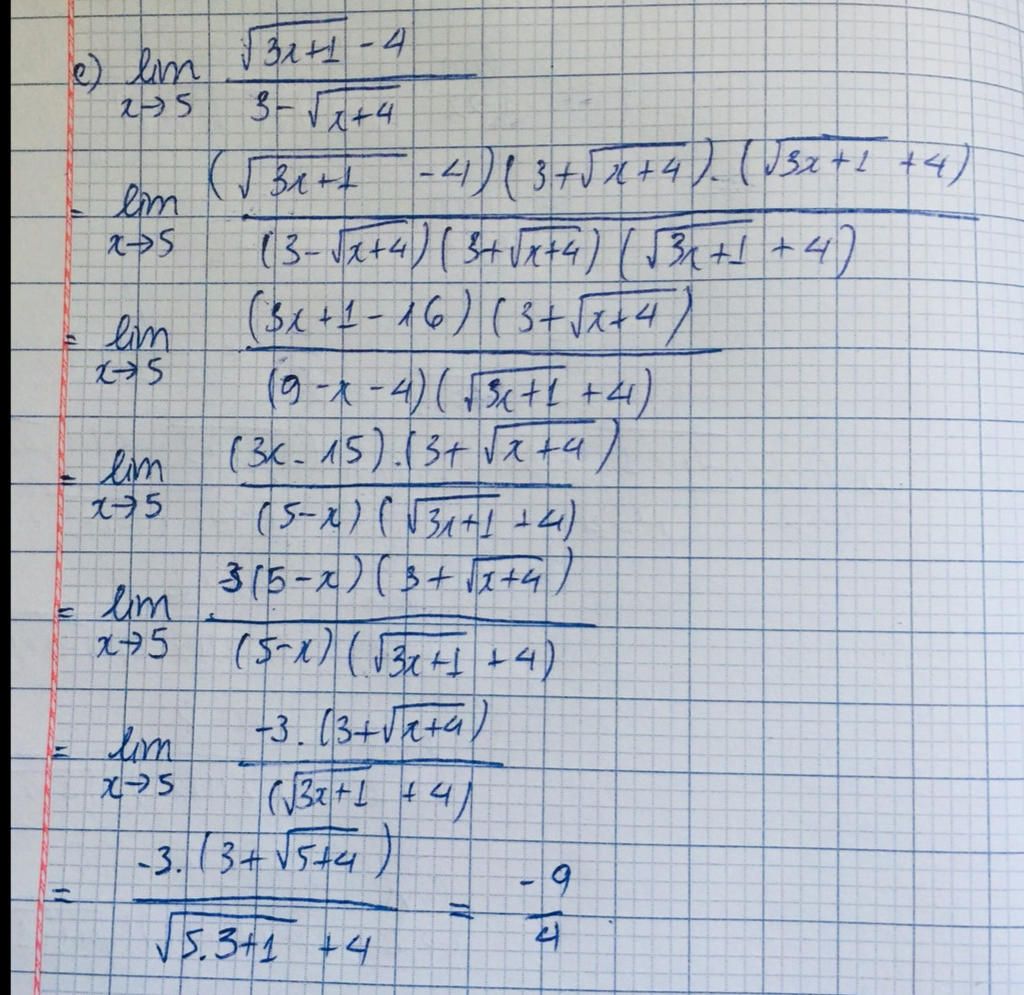 e) lim x→5 (√(3x+1) - 4) / (3 - √(x+4))
= lim x→5 ((√(3x+1) - 4)(3+√(x+4)).(√(3x+1) + 4)) / ((3-√(x+4))(3+√(x+4))(√(3x+1) + 4))
= lim x→5 ((3x+1-16)(3+√(x+4))) / ((9-x-4)(√(3x+1) + 4))
= lim x→5 ((3x-15).(3+√(x+4))) / ((5-x)(√(3x+1) + 4))
= lim x→5 (3(5-x)(3+√(x+4))) / ((5-x)(√(3x+1) + 4))
= lim x→5 (-3.(3+√(x+4))) / ((√(3x+1) + 4))
= (-3.(3+√(5+4))) / (√(5.3+1) + 4) = -9/4